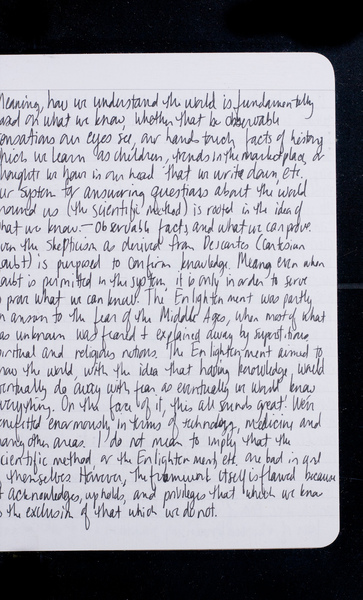 Meaning, how we understand the world is fundamentally
ased on what we know, whether that be observable
ensations our eyes see, our hands touch, facts of history
hich we learn as children, trends in the marketplace, or
houghts we have in our head that we write down, etc.
ur system for answering questions about the world
round us (the scientific method) is rooted in the idea of
hat we know — observable facts, and what we can prove.
ven the skepticism as derived from Descartes (Cartesian
oubt) is purposed to confirm knowledge. Meaning even when
oubt is permitted in the system, it is only in order to serve
o prove what we can know. The Enlightenment was partly
n answer to the fear of the Middle Ages, when most of what
as unknown was feared + explained away by superstitious,
piritual and religious notions. The Enlightenment aimed to
now the world, with the idea that having knowledge, would
ventually do away with fear as eventually we would know
verything. On the face of it, this all sounds great! We've
enefitted enormously in terms of technology, medicine and
many other areas. I do not mean to imply that the
cientific method or the Enlightenment, etc. are bad in and
f themselves. However, the framework itself is flawed because
t acknowledges, upholds, and privileges that which we know
o the exclusion of that which we do not.